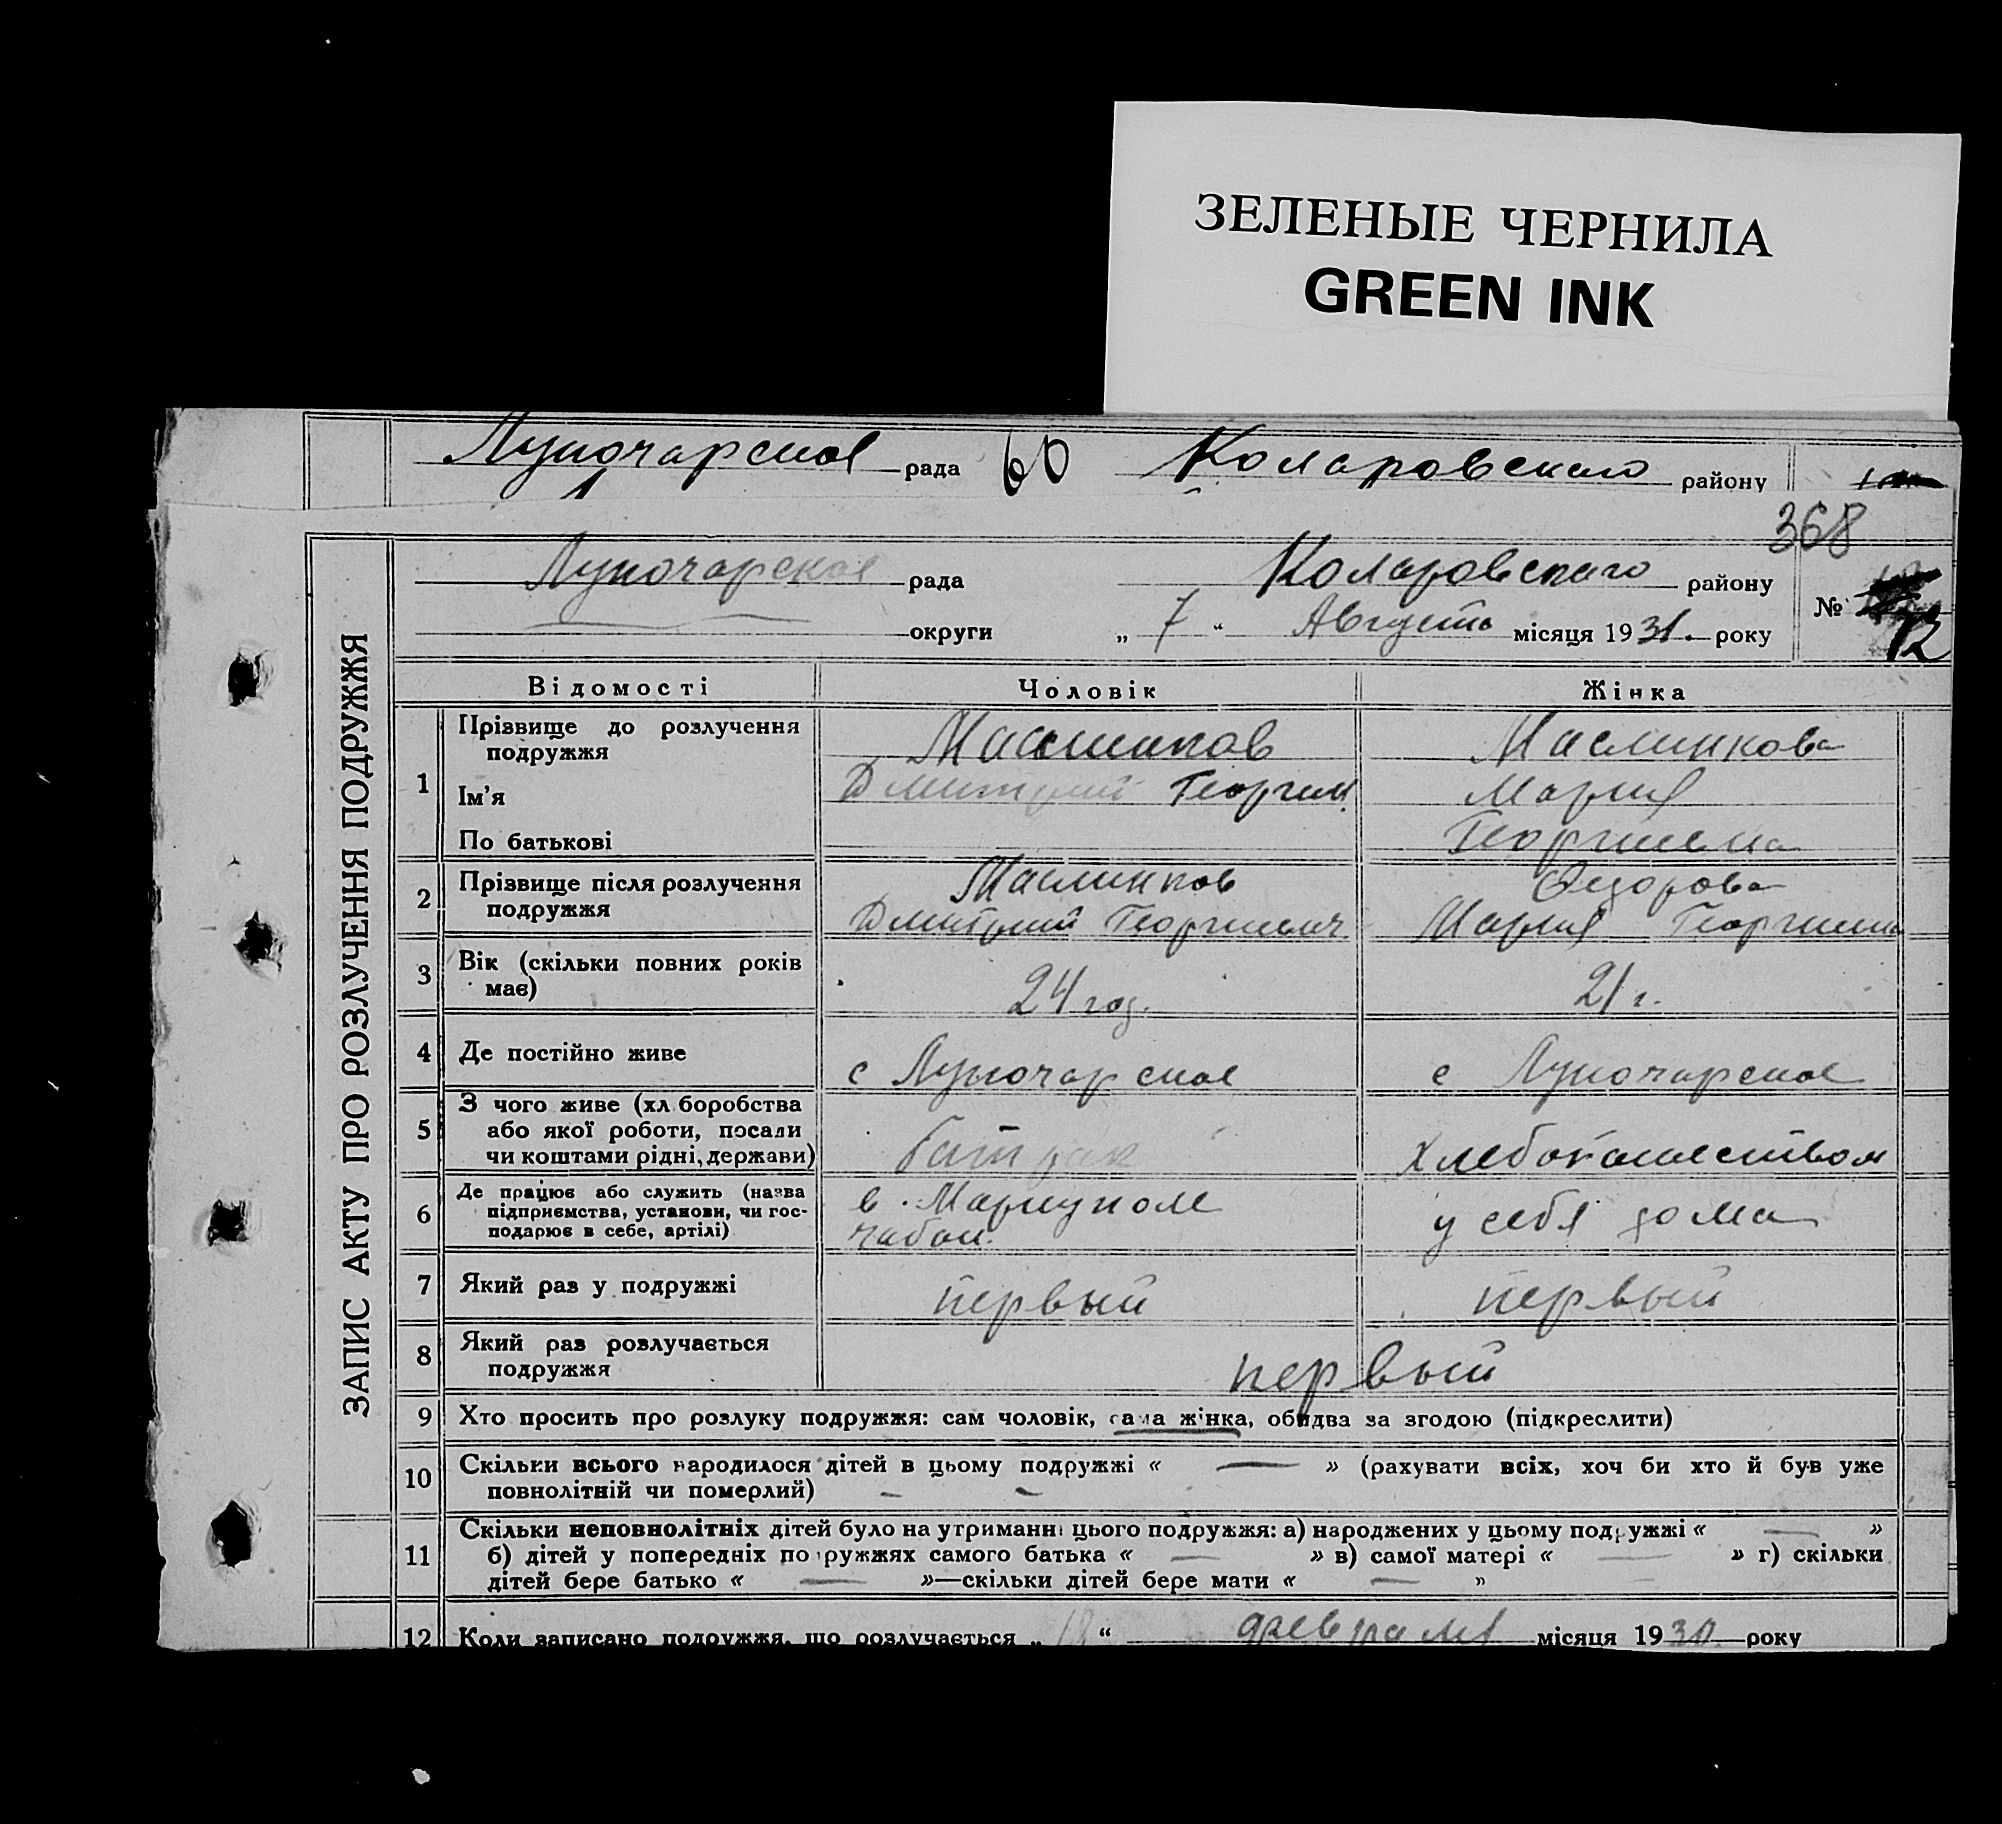 ЗЕЛЕНЫЕ ЧЕРНИЛА
GREEN INK
Луночарское рада 60 Коларовского району
368
Луночарское рада Коларовского району
округи „ 7 “ Августа місяця 1931. року № 12
ЗАПИС АКТУ ПРО РОЗЛУЧЕННЯ ПОДРУЖЖЯ
Відомості Чоловік Жінка
1 Прізвище до розлучення подружжя Маслинков Маслинкова
Ім'я Дмитрий Георгиев. Мария
По батькові Георгиевна
2 Прізвище після розлучення Маслинков Федорова
подружжя Дмитрий Георгиевич Мария Георгиевна
3 Вік (скільки повних років
має) 24 год. 21 г.
4 Де постійно живе с Луночарское с Луночарское
5 З чого живе (хліборобства
або якої роботи, посади Батрак хлебопашеством
чи коштами рідні, держави)
6 Де працює або служить (назва в Мариуполе
підприємства, установи, чи гос- у себя дома
подарює в себе, артілі) чабан.
7 Який раз у подружжі первый первый
8 Який раз розлучається
подружжя первый
9 Хто просить про розлуку подружжя: сам чоловік, сама жінка, обидва за згодою (підкреслити)
10 Скільки всього народилося дітей в цьому подружжі « — » (рахувати всіх, хоч би хто й був уже
повнолітній чи померлий) — —
11 Скільки неповнолітніх дітей було на утриманні цього подружжя: а) народжених у цьому подружжі « — »
б) дітей у попередніх подружжях самого батька « — » в) самої матері « — » г) скільки
дітей бере батько « — »—скільки дітей бере мати « — »
12 Коли записано подружжя, що розлучається „ “ февраля місяця 1930. року